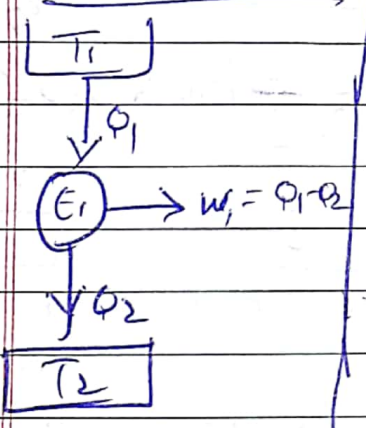 T₁
Q₁
E₁ → W₁ = Q₁-Q₂
Q₂
T₂